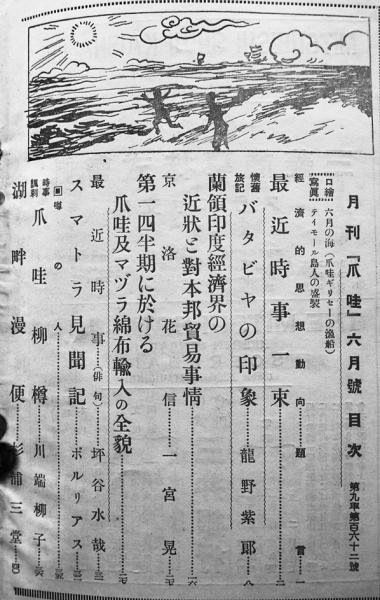 月刊『爪哇』六月號 目次 第九卷第百六十二號
口繪 六月の海(爪哇ギリセーの漁船)
寫眞 ティモール島人の盛裝
經濟的思想動向……題言…一
最近時事一束…………二
懷舊旅記 バタビヤの印象……龍野紫郎…八
蘭領印度經濟界の
近狀と對本邦貿易事情…………一六
京洛花信……一宮晃…一五
第一四半期に於ける
爪哇及マヅラ綿布輸入の全貌……
最近時事(俳句)……坪谷水哉…
スマトラ見聞記……ボルリアス…
噂の人……
時事諷刺 爪哇柳樽……川端柳子…
湖畔漫便……杉浦三堂…